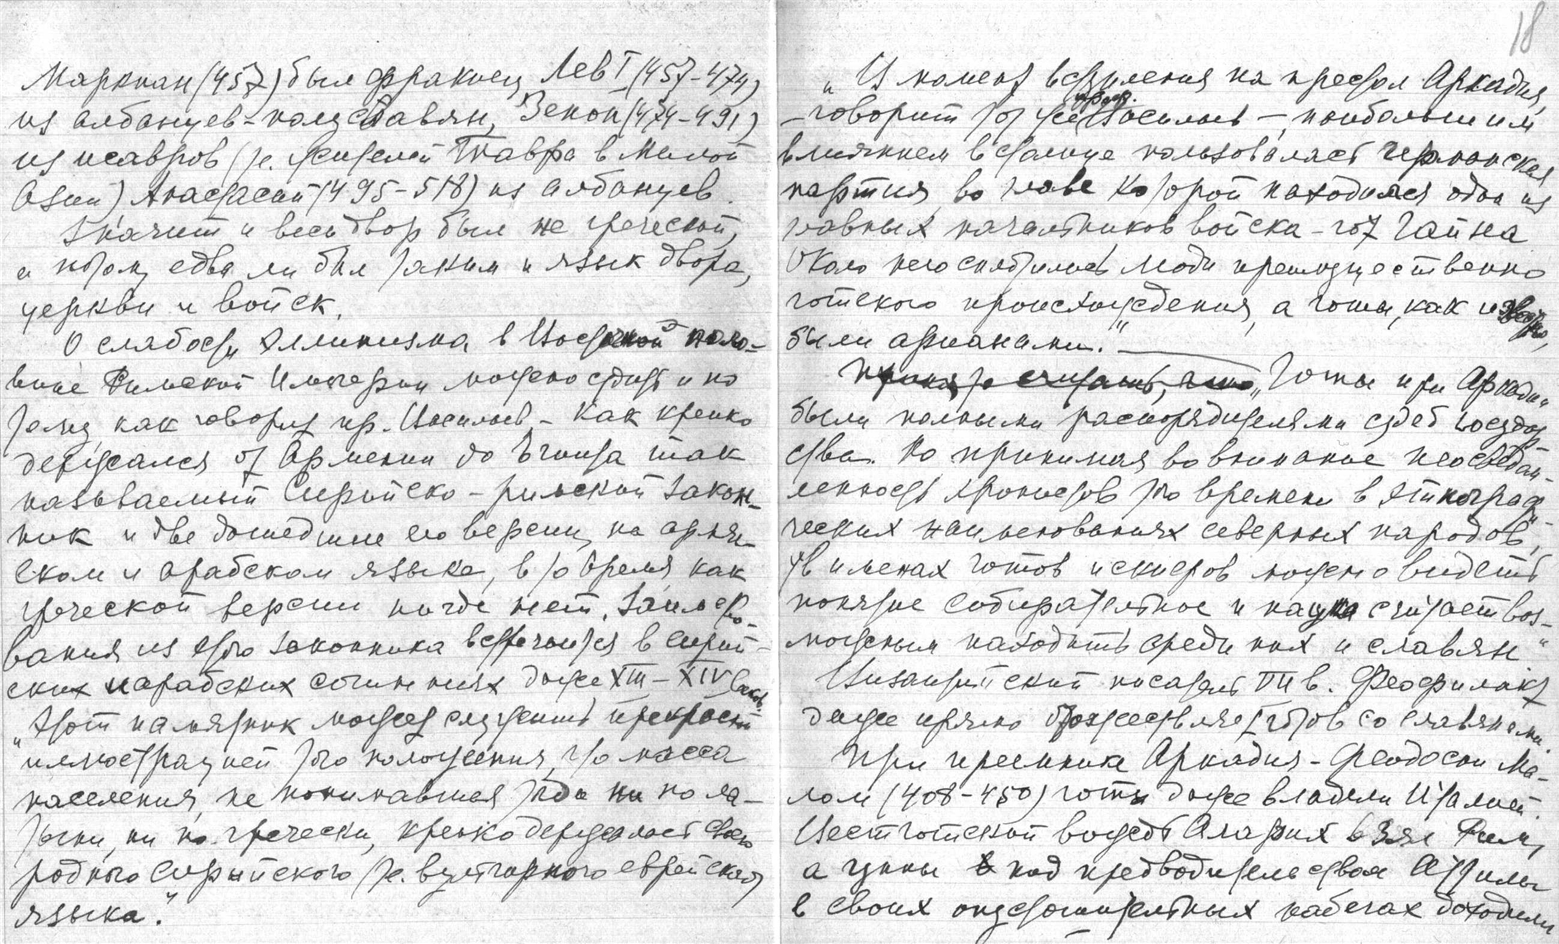 Маркиан (457) был фракиец, Лев I (457-474)
из албанцев-полуславян, Зенон (474-491)
из исавров (т.е. жителей Тавра в Малой
Азии) Анастасий (495-518) из албанцев.
Значит и весь двор был не греческий,
и потому едва ли был таким и язык двора,
церкви и войск.
О слабости эллинизма в Восточной поло-
вине Римской Империи можно судить и по
тому, как говорит пр. Васильев, - как крепко
держался от Армении до Египта так
называемый Сирийско-римский закон-
ник и две дошедшие его версии, на армян-
ском и арабском языке, в то время как
греческой версии нигде нет. Заимство-
вания из этого законника встречаются в сирий-
ских и арабских сочинениях даже XIII-XIV вв.
"Этот памятник может служить прекрасной
иллюстрацией того положения, что масса
населения, не понимавшая тогда ни по ла-
тыни, ни по-гречески, крепко держалась своего
родного сирийского (т.е. вульгарного еврейского)
языка."
18
"В момент вступления на престол Аркадия,
- говорит тот же проф. Васильев -, наибольшим
влиянием в столице пользовалась германская
партия, во главе которой находился один из
главных начальников войска - гот Гайна
Около него сплотились люди преимущественно
готского происхождения, а готы, как известно,
были арианами."
Приходится считать, что "Готы при Аркадии
были полными распорядителями судеб государ-
ства. Но принимая во внимание неосведом-
ленность хронистов того времени в этнографи-
ческих наименованиях северных народов,
в именах готов и скифов можно видеть
понятие собирательное и наука считает воз-
можным находить среди них и славян"
Византийский писатель VII в. Феофилакт
даже прямо отождествляет готов со славянами.
При преемнике Аркадия - Феодосии Ма-
лом (408-450) готы даже владели Италией.
Вестготский вождь Аларих взял Рим,
а гунны под предводительством Аттилы
в своих опустошительных набегах доходили